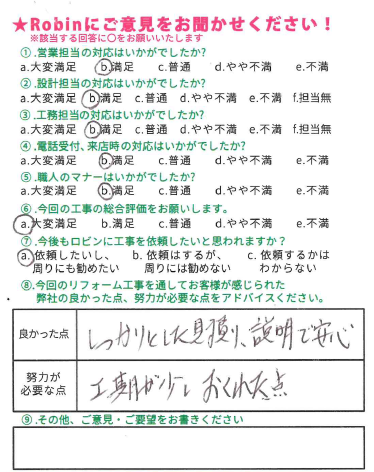 ★Robinにご意見をお聞かせください！
※該当する回答に〇をお願いいたします
①.営業担当の対応はいかがでしたか?
a.大変満足 b.満足 c.普通 d.やや不満 e.不満
②.設計担当の対応はいかがでしたか?
a.大変満足 b.満足 c.普通 d.やや不満 e.不満 f.担当無
③.工務担当の対応はいかがでしたか?
a.大変満足 b.満足 c.普通 d.やや不満 e.不満 f.担当無
④.電話受付、来店時の対応はいかがでしたか?
a.大変満足 b.満足 c.普通 d.やや不満 e.不満
⑤.職人のマナーはいかがでしたか?
a.大変満足 b.満足 c.普通 d.やや不満 e.不満
⑥.今回の工事の総合評価をお願いします。
a.大変満足 b.満足 c.普通 d.やや不満 e.不満
⑦.今後もロビンに工事を依頼したいと思われますか？
a.依頼したいし、 b. 依頼はするが、 c. 依頼するかは
周りにも勧めたい 周りには勧めない わからない
⑧.今回のリフォーム工事を通してお客様が感じられた
弊社の良かった点、努力が必要な点をアドバイスください。
良かった点 しっかりとした見積り、説明で安心
努力が
必要な点 工期が少しおくれた点
⑨.その他、ご意見・ご要望をお書きください